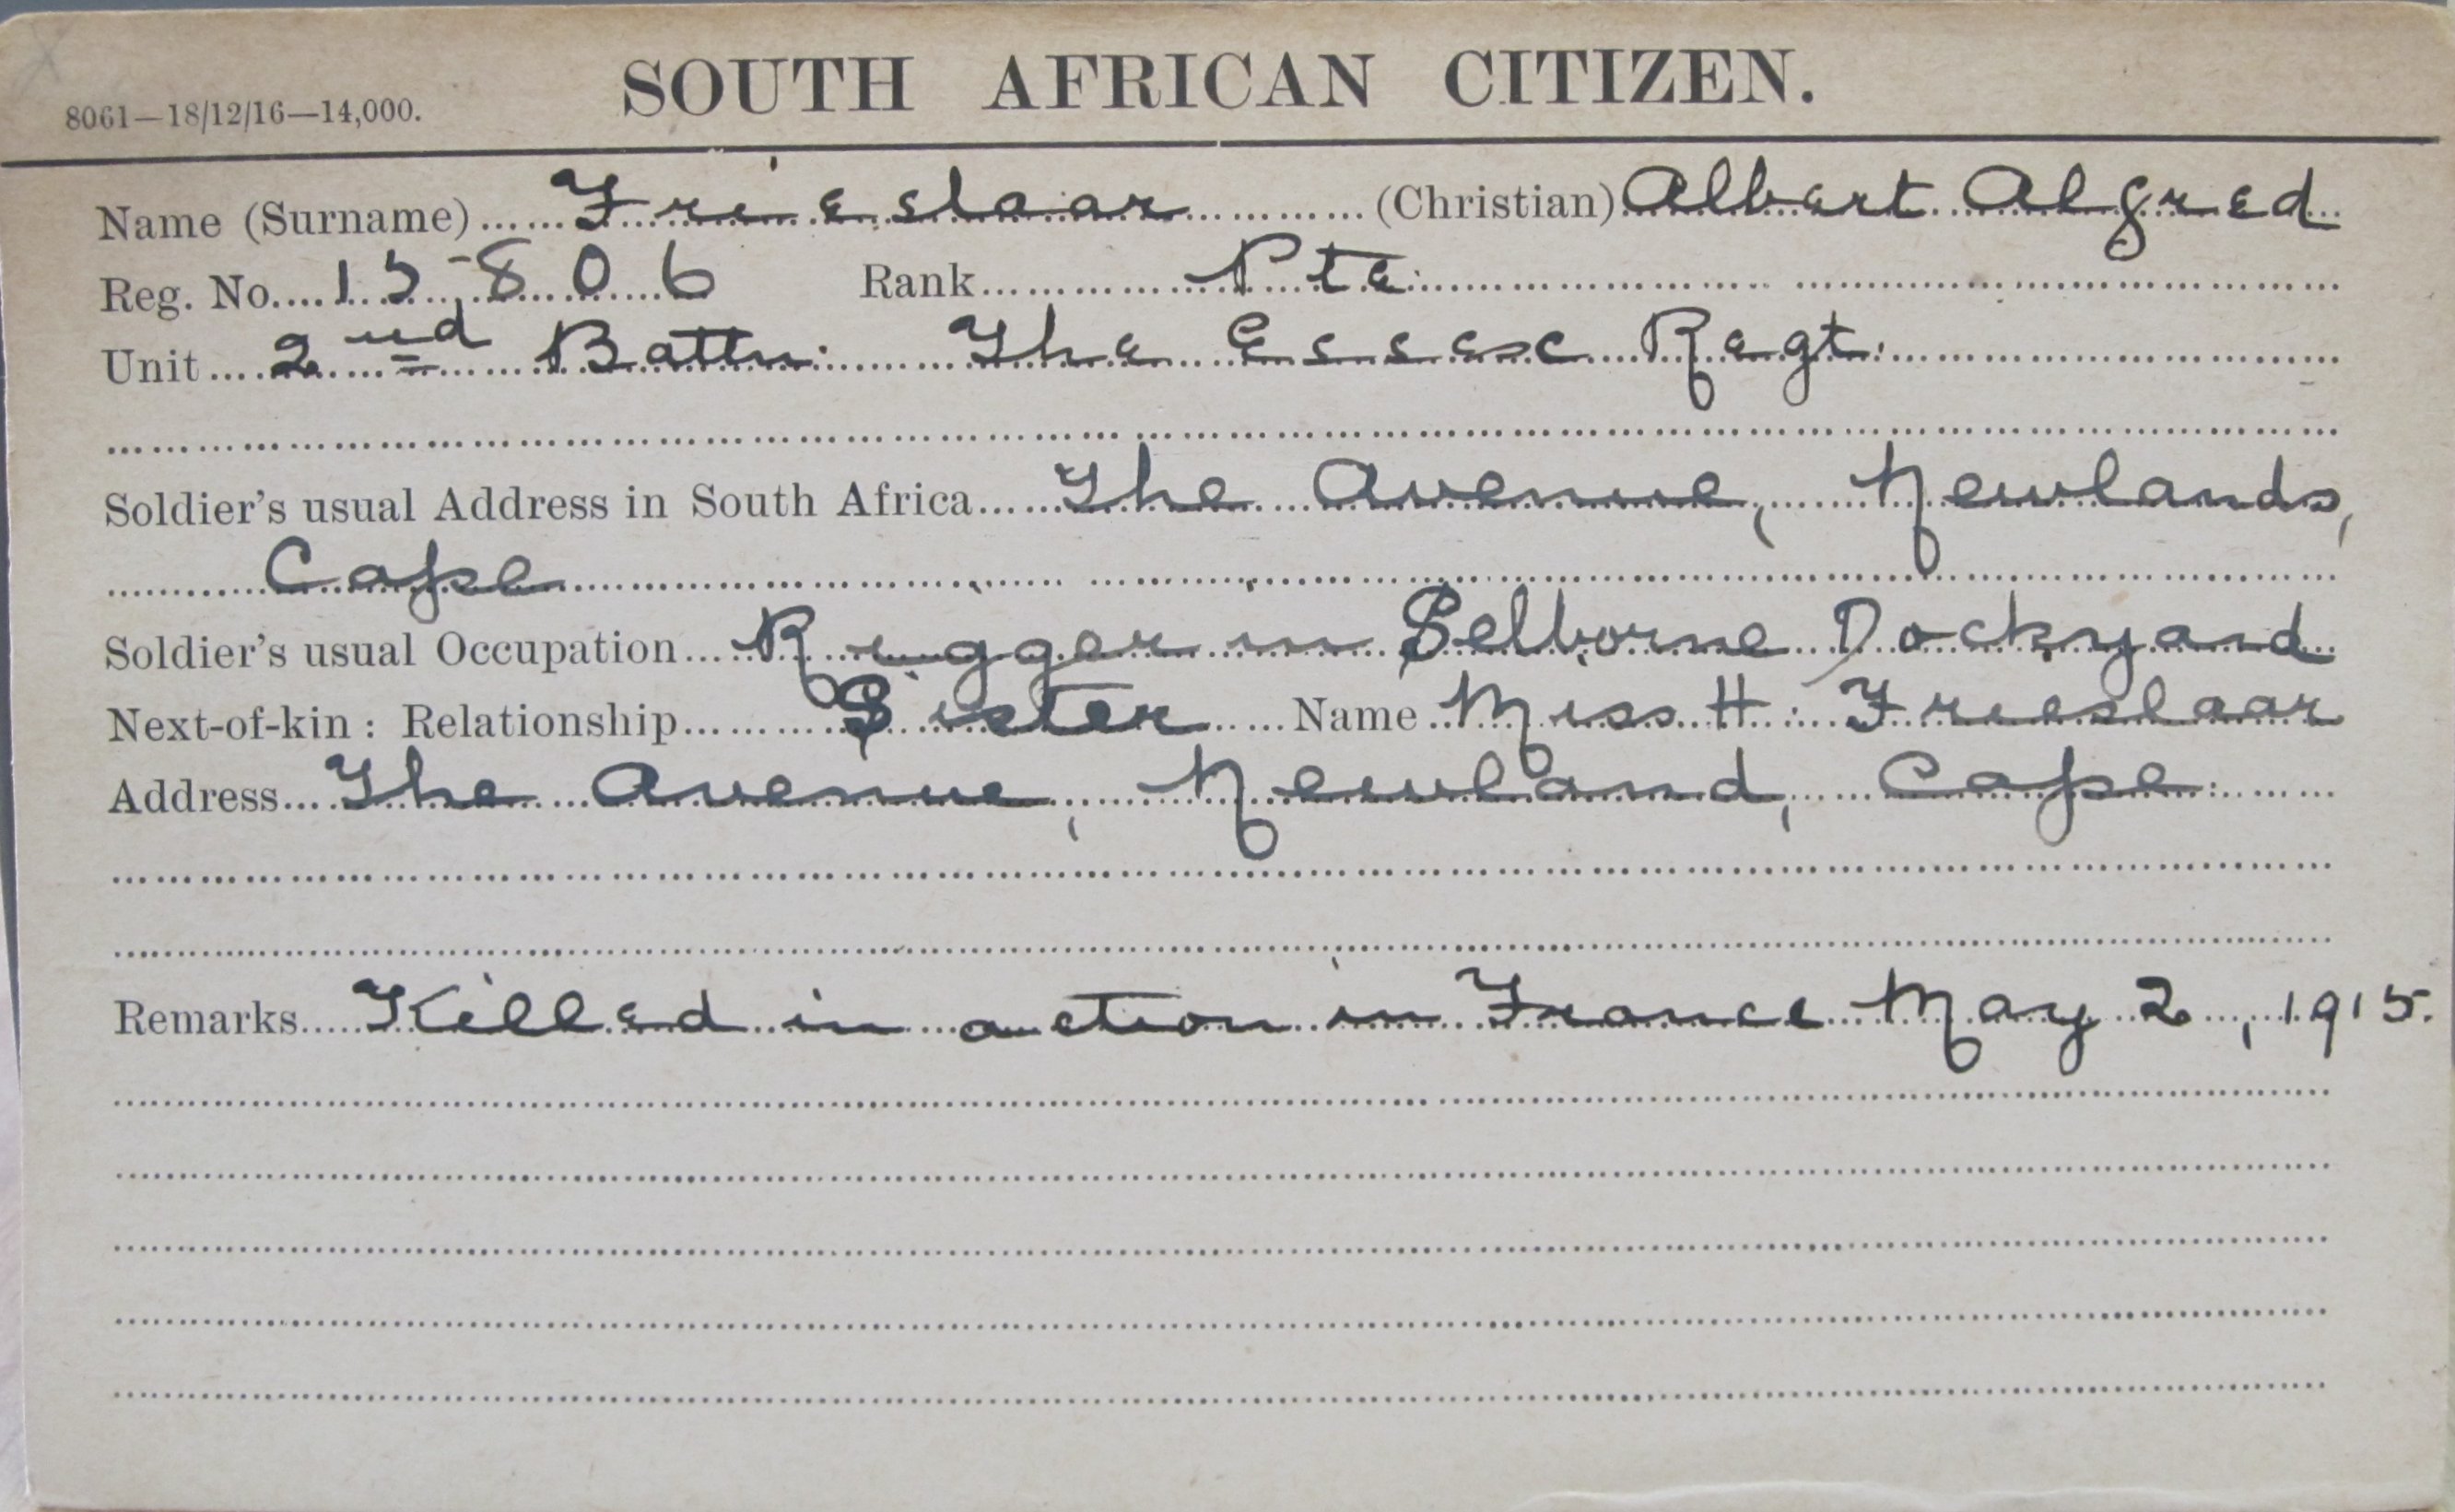 SOUTH AFRICAN CITIZEN.
8061—18/12/16—14,000.
Name (Surname) Frieslaar (Christian) Albert Alfred
Reg. No. 15806 Rank Pte.
Unit 2nd Battn. The Essex Regt.
Soldier's usual Address in South Africa The Avenue, Newlands,
Cape
Soldier's usual Occupation Rigger in Selborne Dockyard
Next-of-kin: Relationship Sister Name Miss H. Frieslaar
Address The Avenue, Newland, Cape.
Remarks Killed in action in France May 2, 1915.